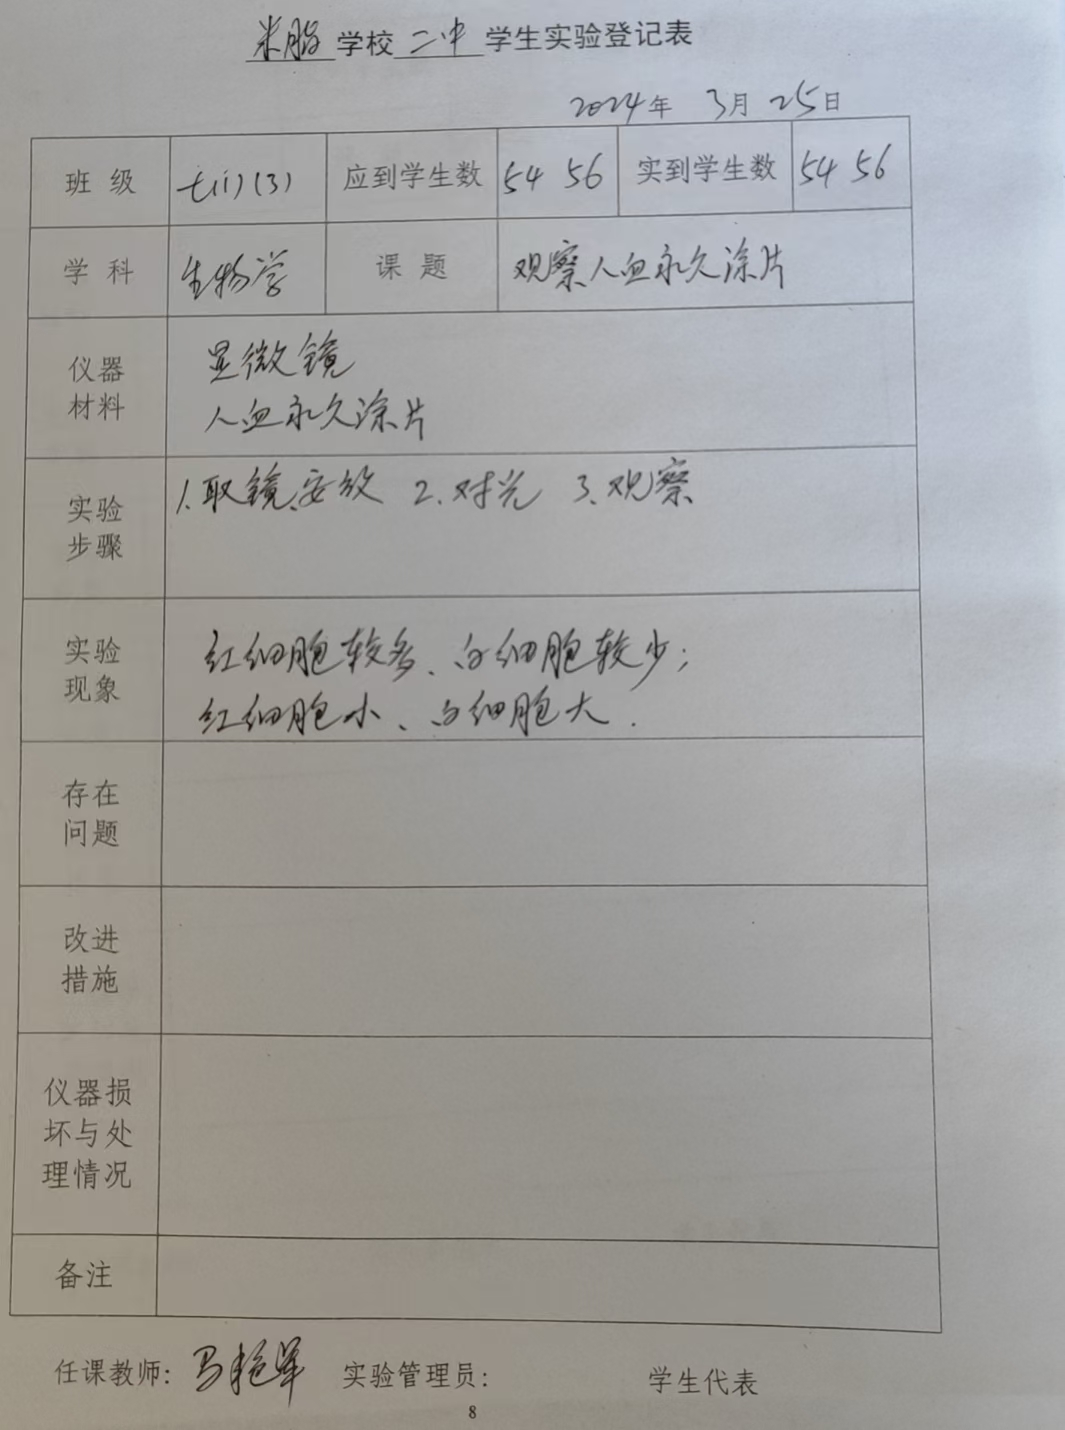 米脂 学校 二中 学生实验登记表
2024年 3月 25日
班 级 七(1)(3) 应到学生数 54 56 实到学生数 54 56
学 科 生物学 课 题 观察人血永久涂片
仪器
材料
显微镜
人血永久涂片
实验
步骤
1.取镜、安放 2.对光 3.观察
实验
现象
红细胞较多、白细胞较少;
红细胞小、白细胞大.
存在
问题
改进
措施
仪器损
坏与处
理情况
备注
任课教师: 马艳 实验管理员: 学生代表
8